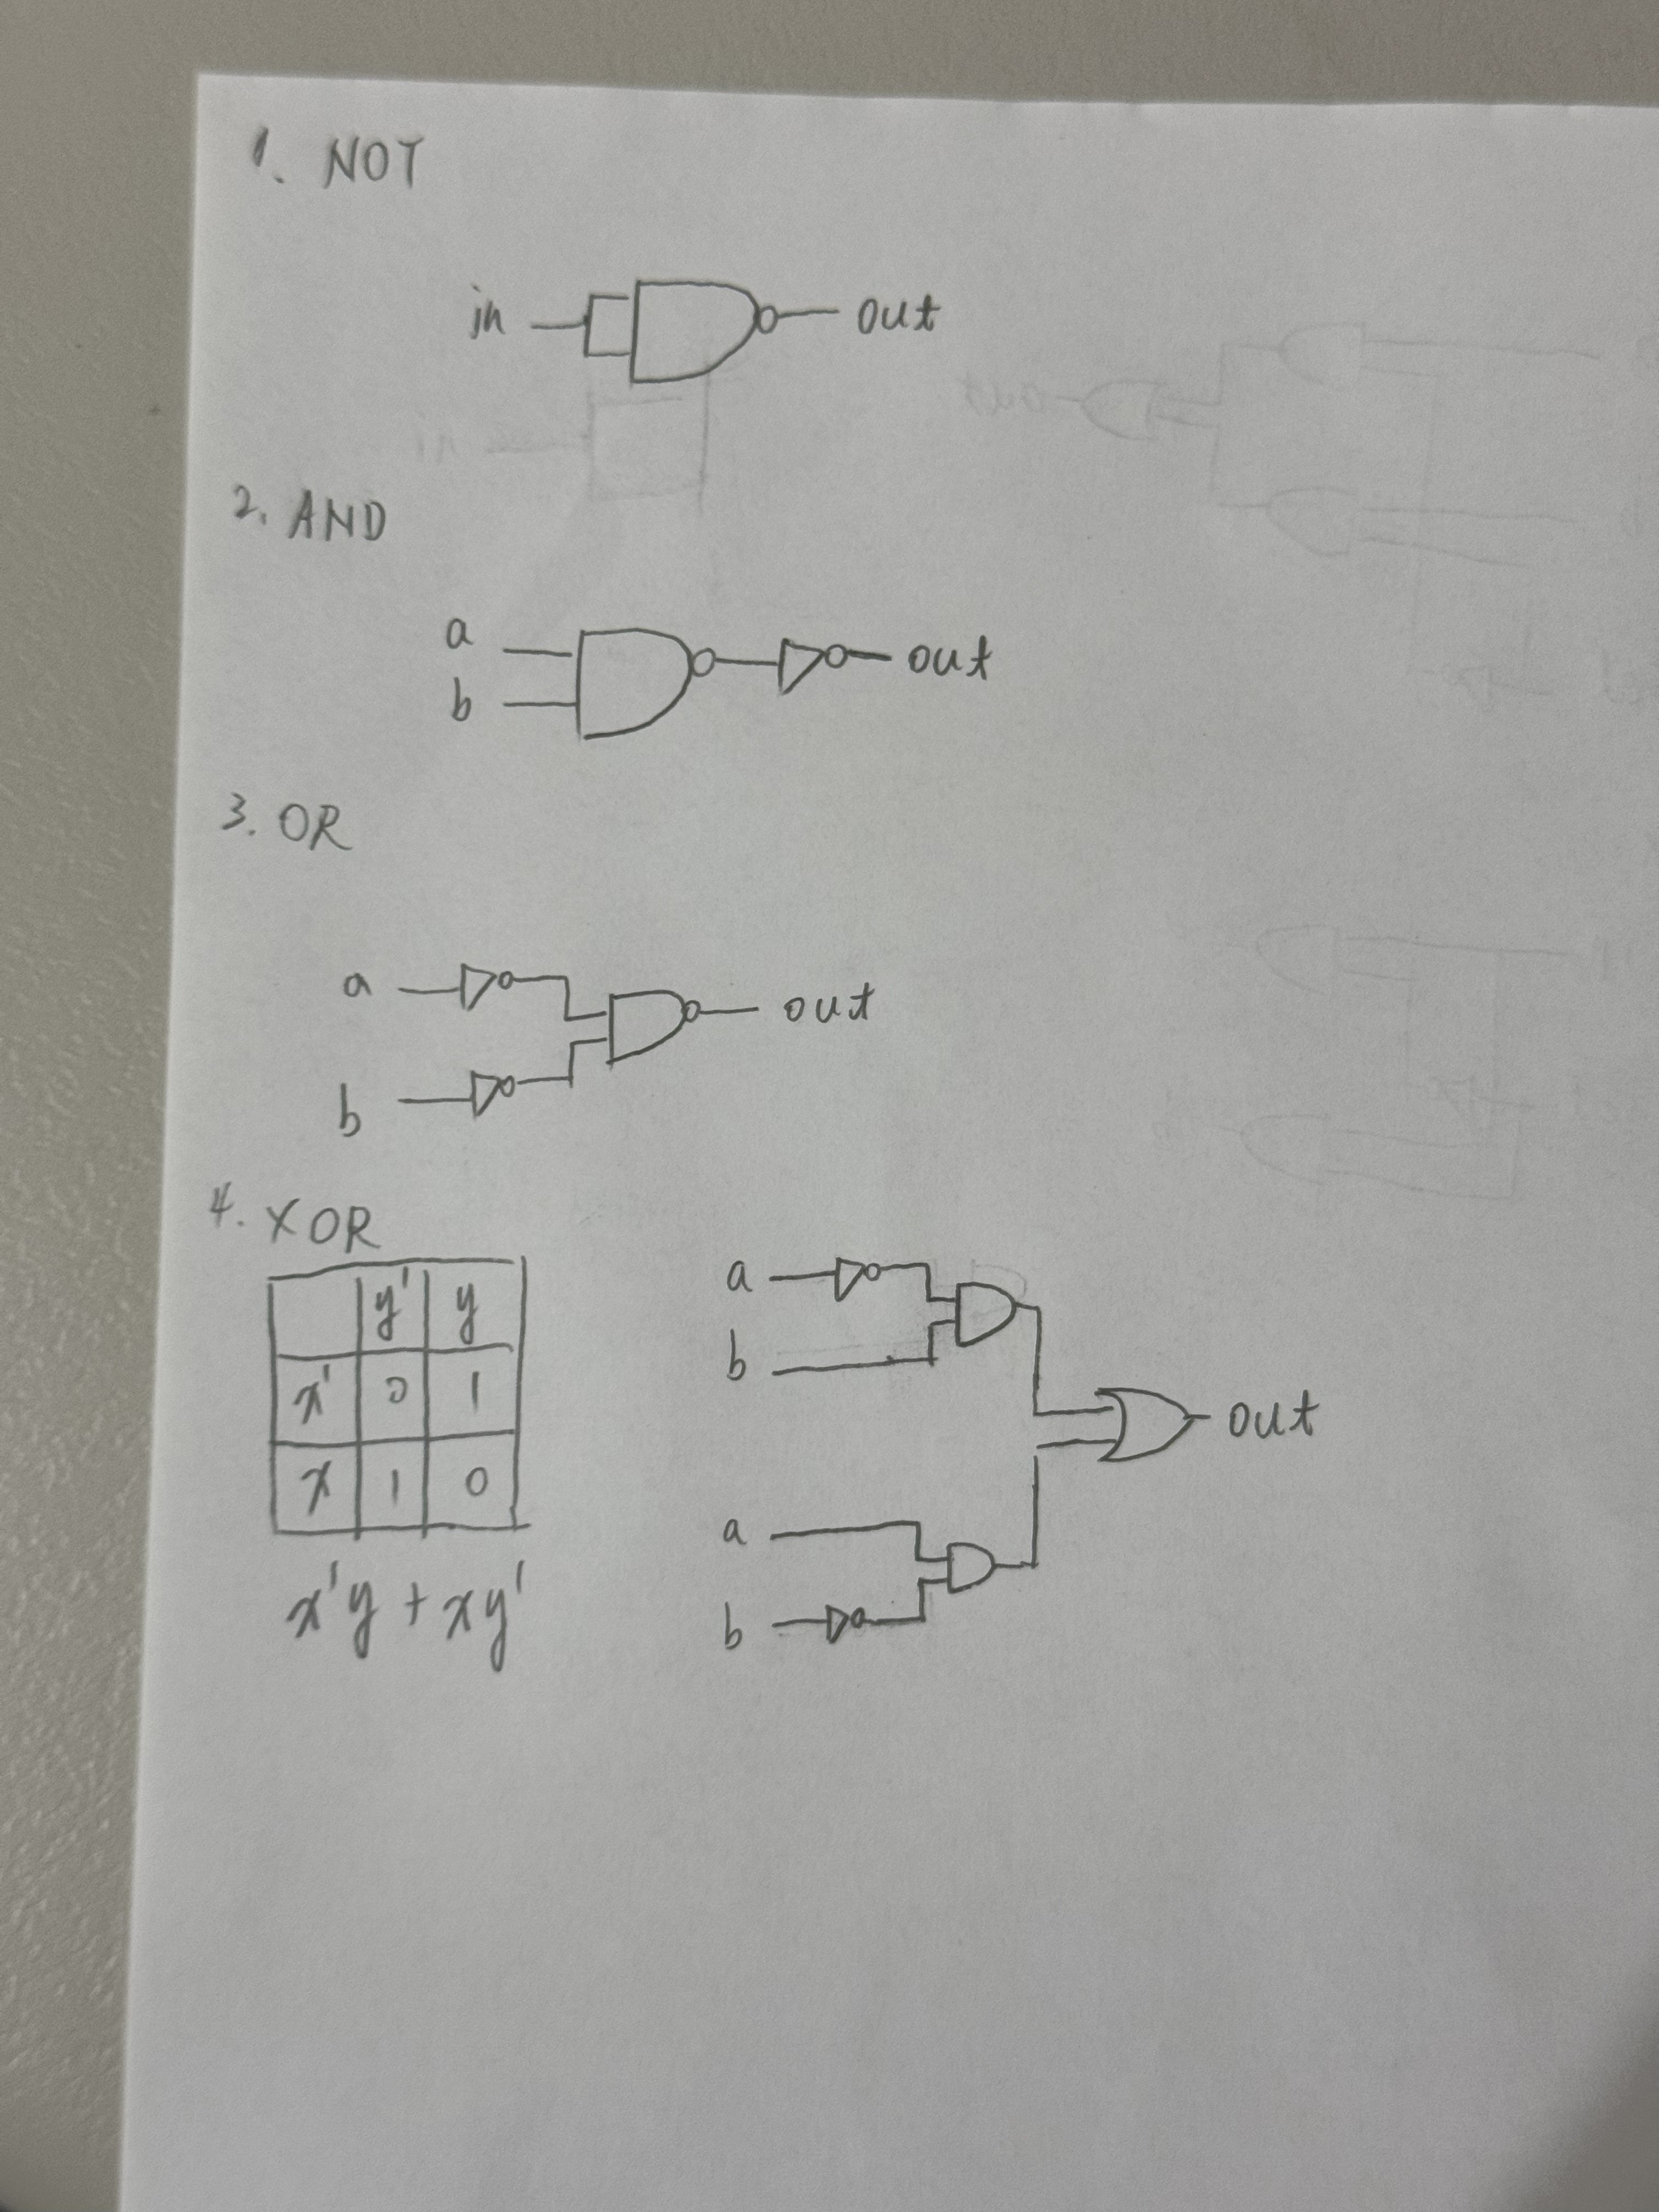 1. NOT
in out
2. AND
a
b
out
3. OR
a
out
b
4. XOR
y' y
x' 0 1
x 1 0
x'y + xy'
a
b
out
a
b